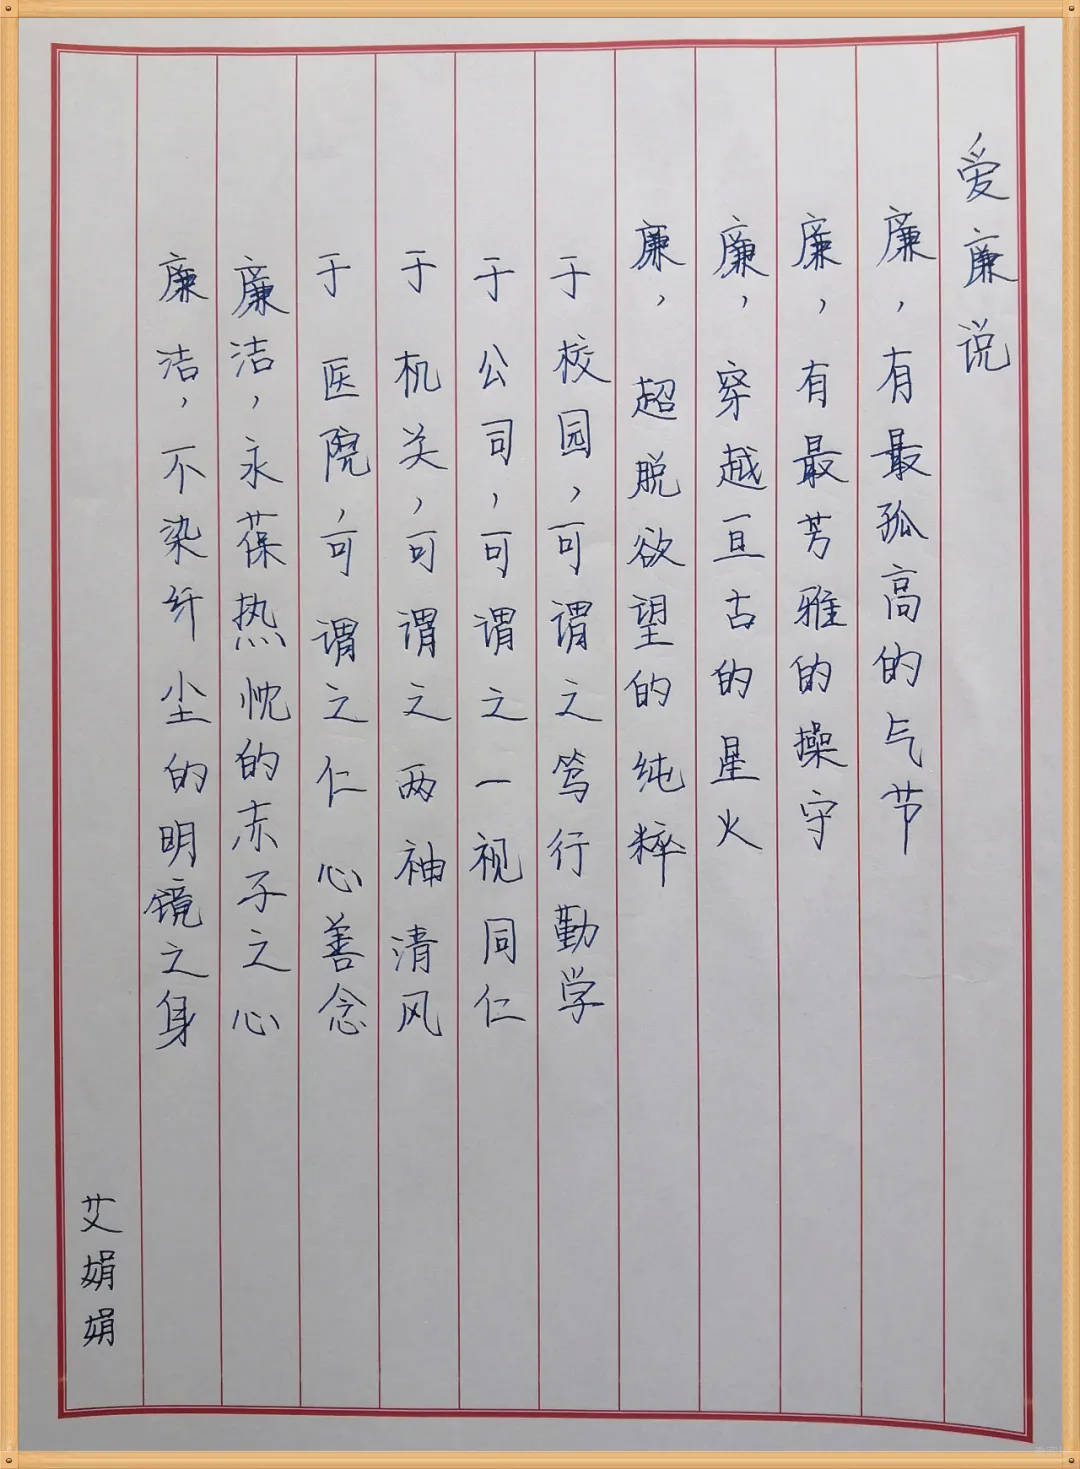 爱廉说
廉，有最孤高的气节
廉，有最芳雅的操守
廉，穿越亘古的星火
廉，超脱欲望的纯粹
于校园，可谓之笃行勤学
于公司，可谓之一视同仁
于机关，可谓之两神清风
于医院，可谓之仁心善念
廉洁，永葆热忱的赤子之心
廉洁，不染纤尘的明镜之身
艾娟娟